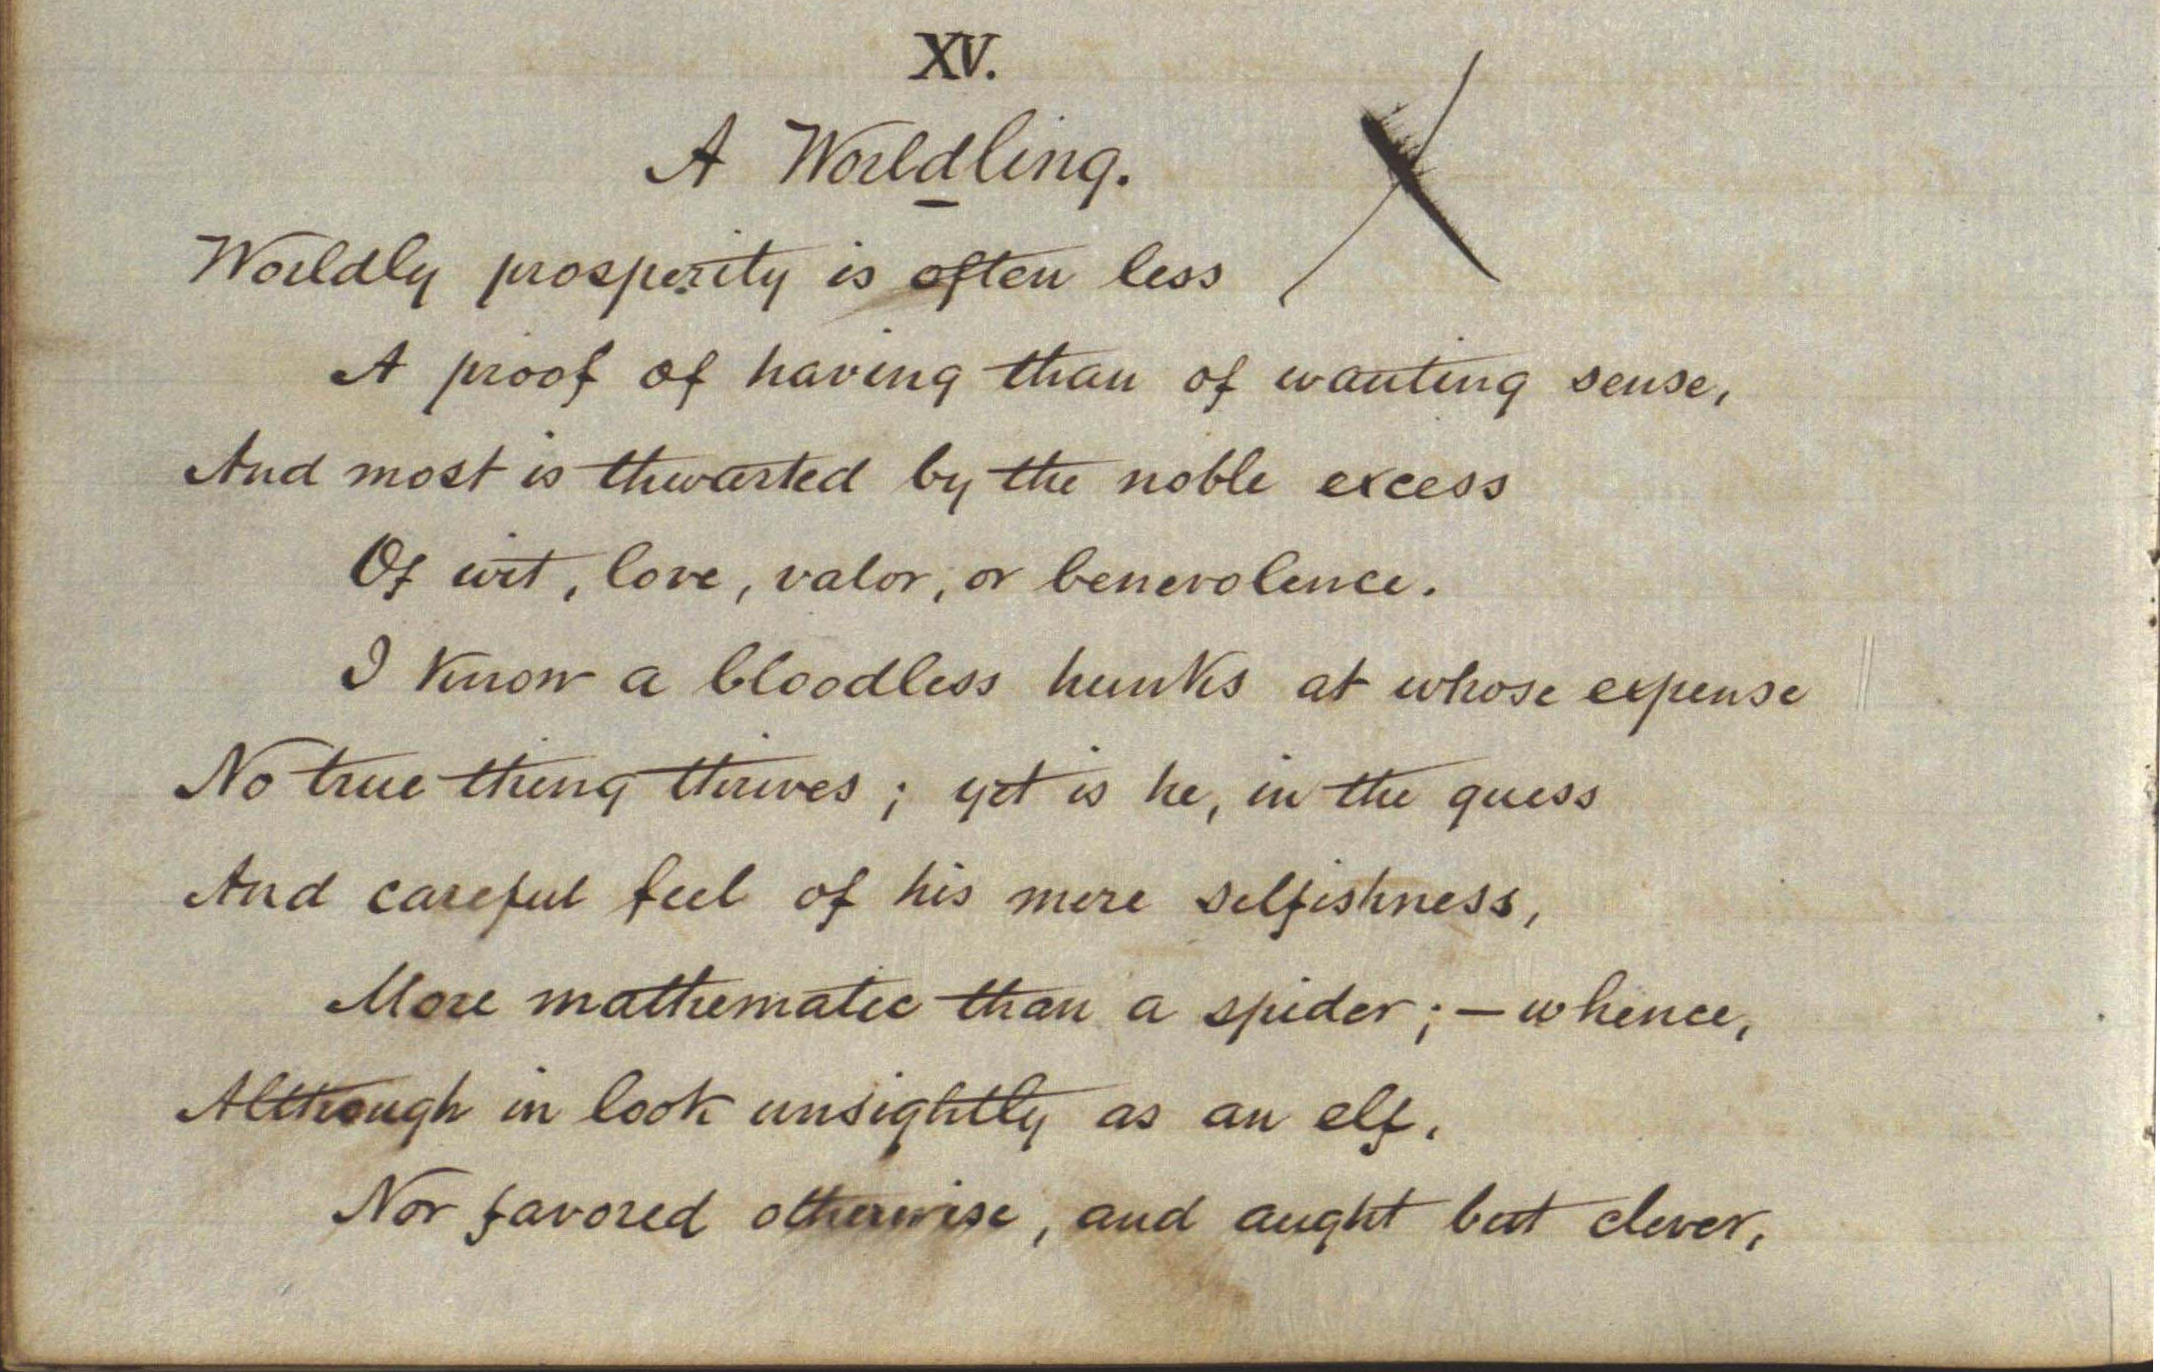 XV.
A Worldling.
Worldly prosperity is often less
A proof of having than of wanting sense,
And most is thwarted by the noble excess
Of wit, love, valor, or benevolence.
I know a bloodless hunks at whose expense
No true thing thrives; yet is he, in the guess
And careful feel of his mere selfishness,
More mathematic than a spider; — whence,
Although in look unsightly as an elf,
Nor favored otherwise, and aught but clever,